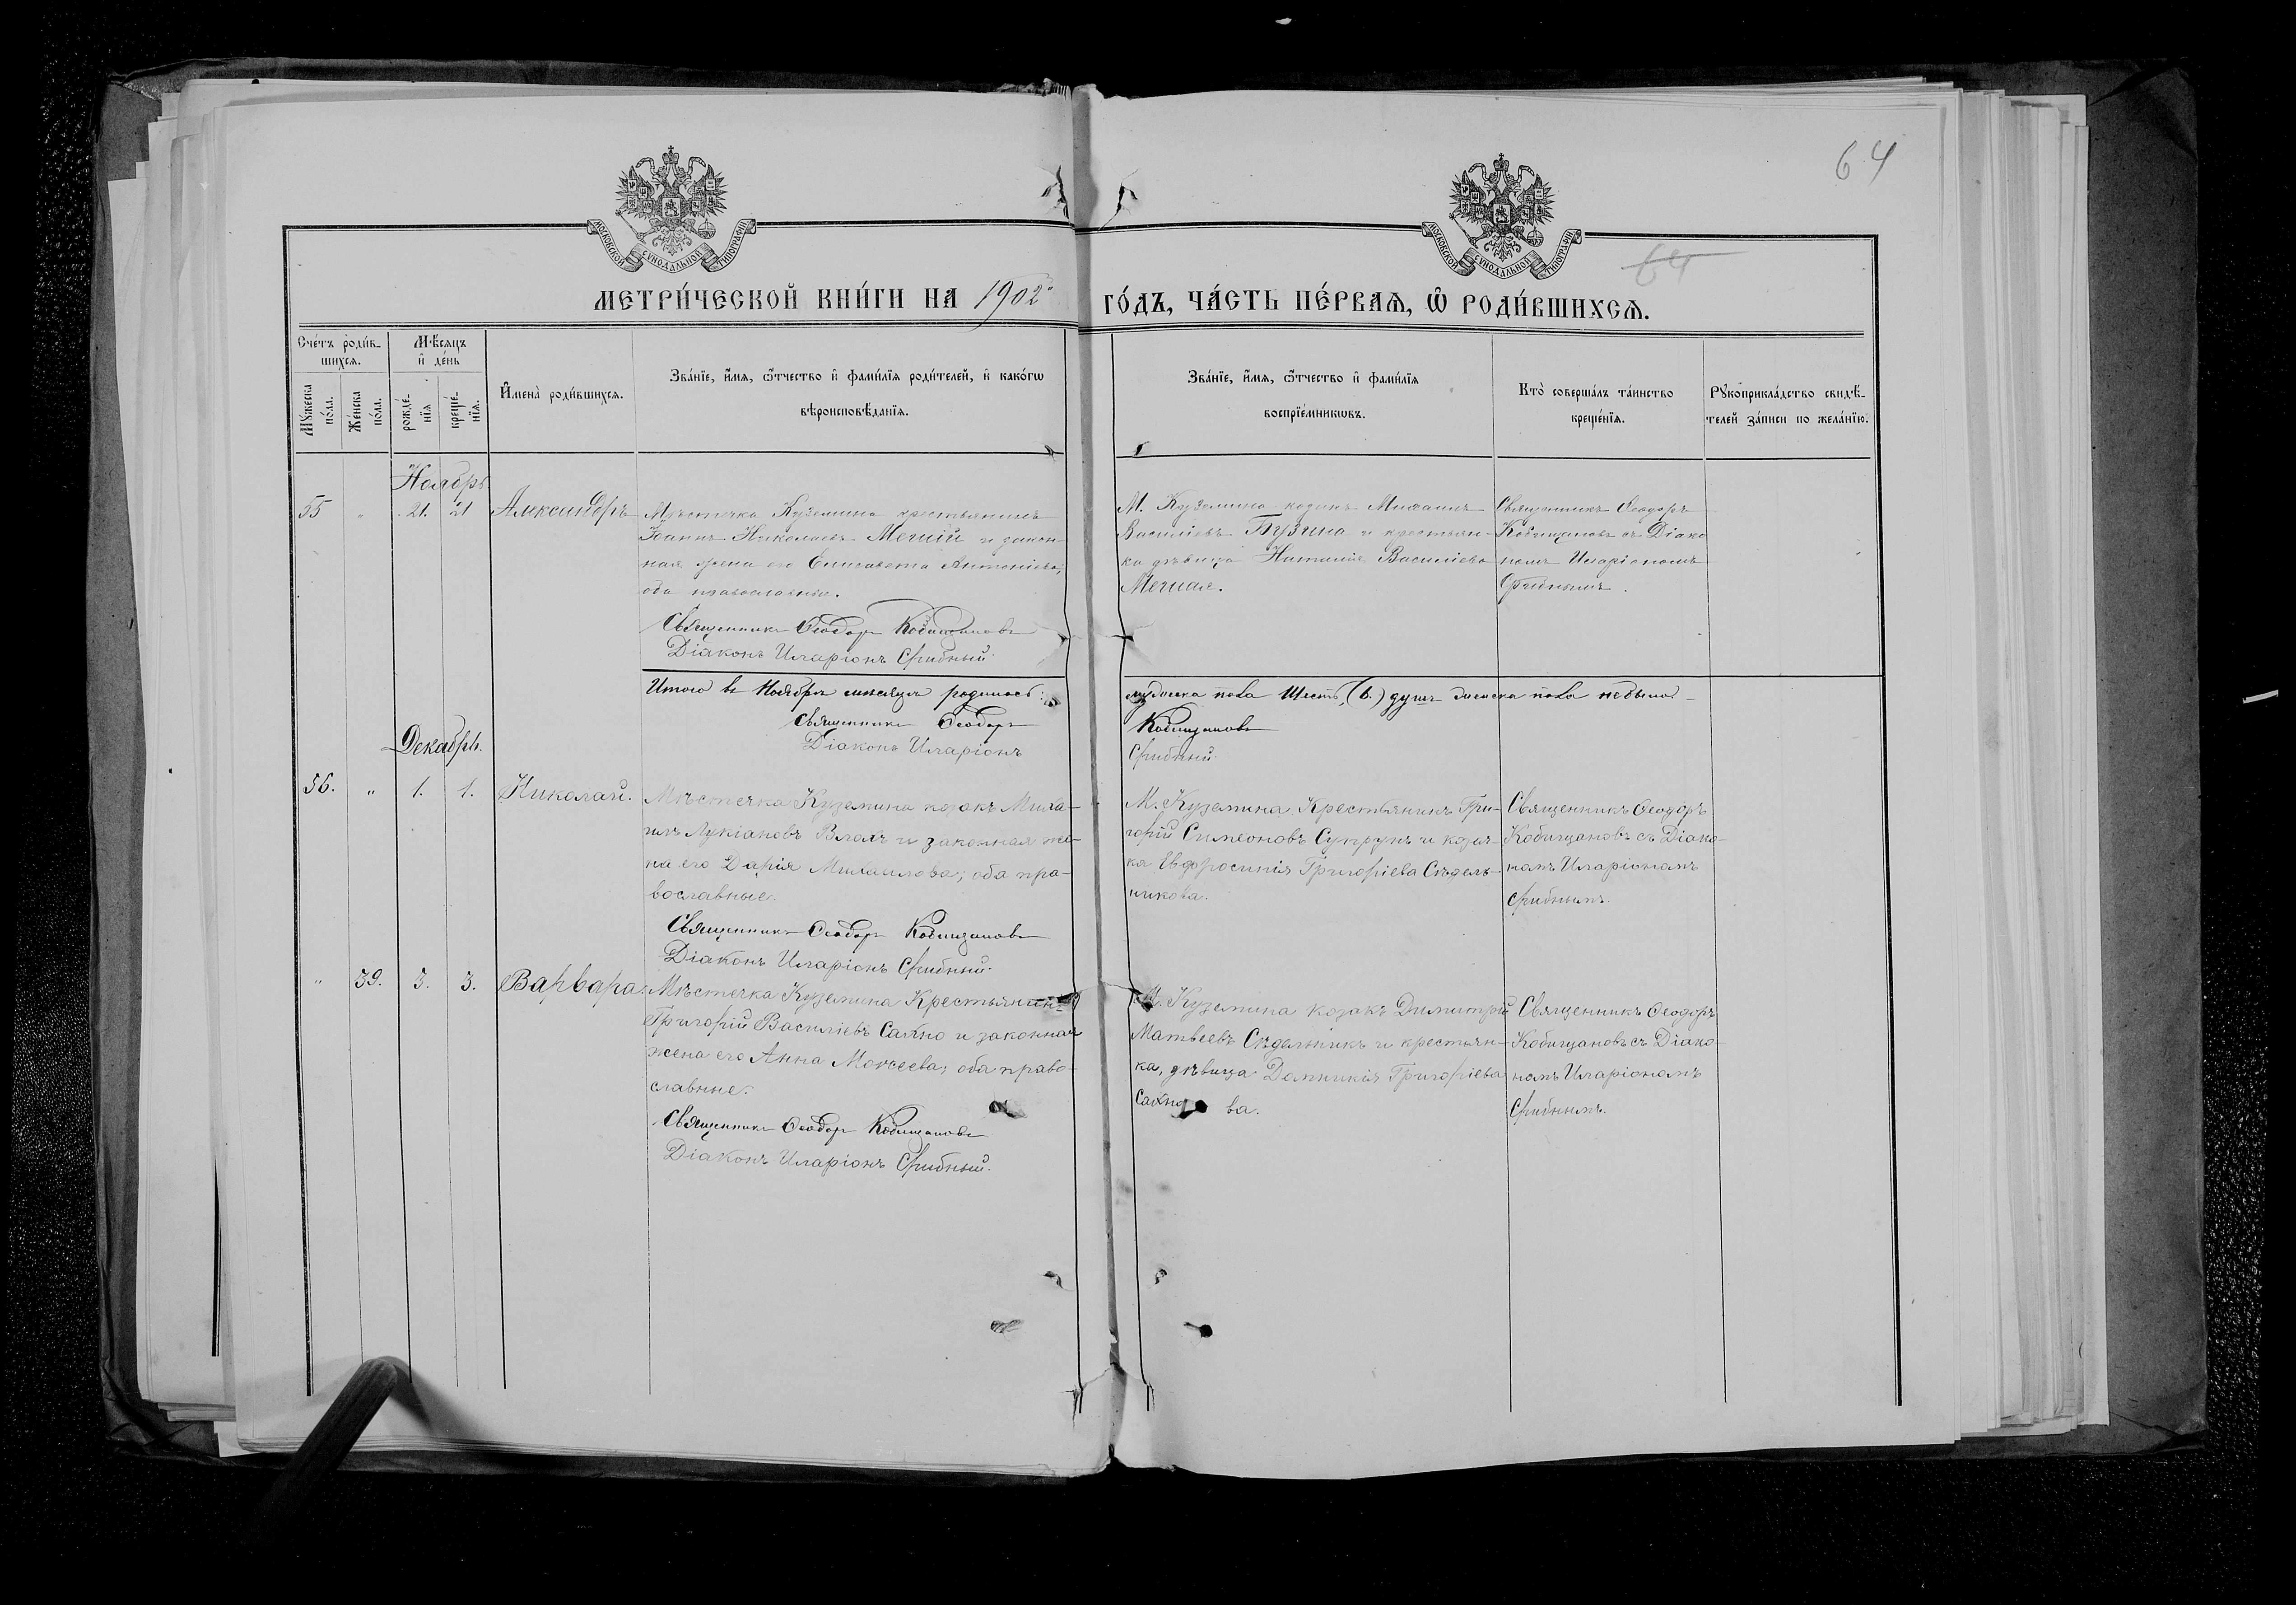 64
МОСКОВСКОЙ СѴНОДАЛЬНОЙ ТИПОГРАФІИ
МОСКОВСКОЙ СѴНОДАЛЬНОЙ ТИПОГРАФІИ
64
МЕТРИ́ЧЕСКОЙ КНИ́ГИ НА 1902й ГО́ДЪ, ЧА́СТЬ ПЕ́РВАѦ, Ѡ РОДИ́ВШИХСѦ.
Сче́тъ роди́в-
шихсѧ.
Мѣ́сѧцъ
и҆ де́нь
Мꙋ́жеска
по́ла.
Же́нска
по́ла.
рожде́-
нїѧ
креще́-
нїѧ.
И҆мена̀ роди́вшихсѧ.
Зва́нїе, и҆́мѧ, ѻ҆́тчество и҆ фами́лїѧ роди́телей, и҆ како́гѡ
вѣроисповѣ́данїѧ.
Зва́нїе, и҆́мѧ, ѻ҆́тчество и҆ фами́лїѧ
воспрїе́мникѡвъ.
Кто̀ соверша́лъ та́инство
креще́нїѧ.
Рꙋкоприкла́дство свидѣ́-
телей за́писи по жела́нїю.
Ноябрь
55 " 21. 21 Александръ
Мѣстечка Куземина крестьянинъ
Іоаннъ Николаевъ Мечий и закон-
ная жена его Елисавета Антоніева,
оба православные.
Священникъ Ѳеодоръ Кобищановъ
Діаконъ Иларіонъ Срибный.
М. Куземина козакъ Михаилъ
Василіевъ Пузина и крестьян-
ка дѣвица Наталія Василіева
Мечиая.
Священникъ Ѳеодоръ
Кобищановъ съ Діако
номъ Иларіономъ
Срибнымъ.
Итого въ Ноябрѣ мѣсяцѣ родилось: мужеска пола Шесть, (6.) душъ женска пола небыло
Священникъ Ѳеодоръ Кобищановъ
Діаконъ Иларіонъ Срибный
Декабрь.
56. " 1. 1. Николай.
Мѣстечка Куземина козакъ Миха-
илъ Лукіановъ Влахъ и законная же-
на его Дарія Михаилова; оба пра-
вославные.
Священникъ Ѳеодоръ Кобищановъ
Діаконъ Иларіонъ Срибный.
М. Куземина Крестьянинъ Гри-
горій Симеоновъ Супрунъ и козач-
ка Евфросинія Григоріева Сѣдель-
никова.
Священникъ Ѳеодоръ
Кобищановъ съ Діако-
номъ Иларіономъ
Срибнымъ.
" 39. 3. 3. Варвара.
Мѣстечка Куземина Крестьянинъ
Григорій Василіевъ Сахно и законная
жена его Анна Моисеева; оба право-
славные.
Священникъ Ѳеодоръ Кобищановъ
Діаконъ Иларіонъ Срибный.
М. Куземина козакъ Димитрій
Матвеевъ Сѣдельникъ и крестьян-
ка, дѣвица Домникія Григоріева
Сахнова.
Священникъ Ѳеодоръ
Кобищановъ съ Діако-
номъ Иларіономъ
Срибнымъ.